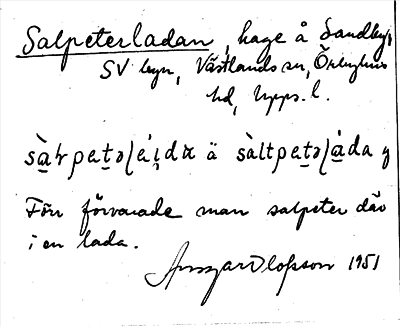 Salpeterladan, hage å Sandby,
SV byn, Västlands sn, Örbyhus
hd, Upps. l.
ä
Förr förvarade man salpeter där
i en lada.
Ansgar Olofsson 1951